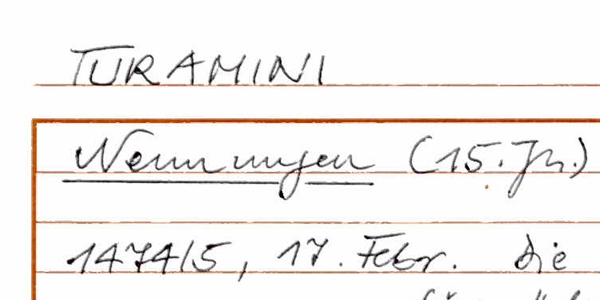 TURAMINI
Nennungen (15. Jh.)
1474/5, 17. Febr. Die